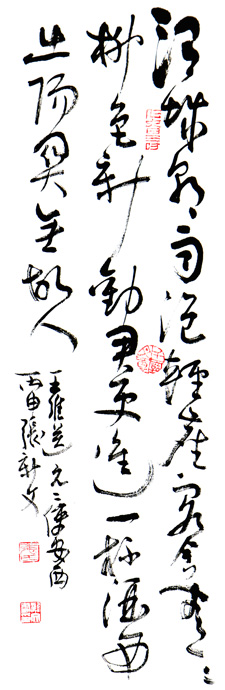 渭城朝雨浥輕塵客舍青々
柳色新勸君更進一杯酒西
出陽關無故人
王維送元二使安西
丙申張新文